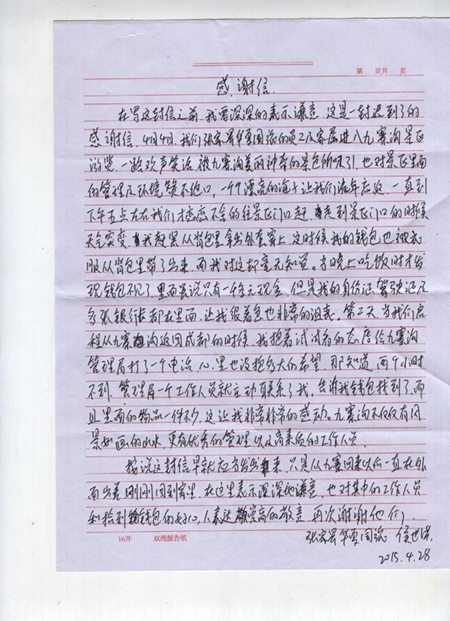 第 页共 页
感谢信
在写这封信之前,我要深深的表示谦意,这是一封迟到了的
感谢信,4月4日,我们张家界华夏国旅的员工及家属进入九寨沟景区
游览,一路欢声笑语,被九寨沟美的神奇的景色所吸引,也对景区里面
的管理及环境赞不绝口,一个个漂亮的海子让我们流连忘返,一直到
下午五点左右我们才恋恋不舍的往景区门口赶,走到景区门口的时候
天气突变,我赶紧从背包里拿出外套穿上,这时候我的钱包也被衣
服从背包里带了出来,而我对这却毫无知觉。于晚上吃饭时才发
现钱包不见了,里面虽说只有一千多元现金,但是我的身份证驾驶证及
多张银行卡都在里面,让我很着急也非常的沮丧。第二天当我们启
程从九寨沟返回成都的时候,我抱着试试看的态度给九寨沟
管理局打了一个电话,心里也没抱多大的希望,那知道,两个小时
不到,管理局一个工作人员就主动联系了我,告诉我钱包找到了,而
且里面的物品一件不少,这让我非常非常的感动,九寨沟不仅仅有风
景如画的山水,更有优秀的管理以及高素质的工作人员
按说这封信早就应当写出来,只是从九寨回来以后一直在外
面出差刚刚回到家里,在这里表示深深地谦意,也对其中的工作人员
和捡到钱包的好心人表达崇高的敬意,再次谢谢他们,
16开 双线报告纸
张家界华夏国旅 侯
2015.4.28